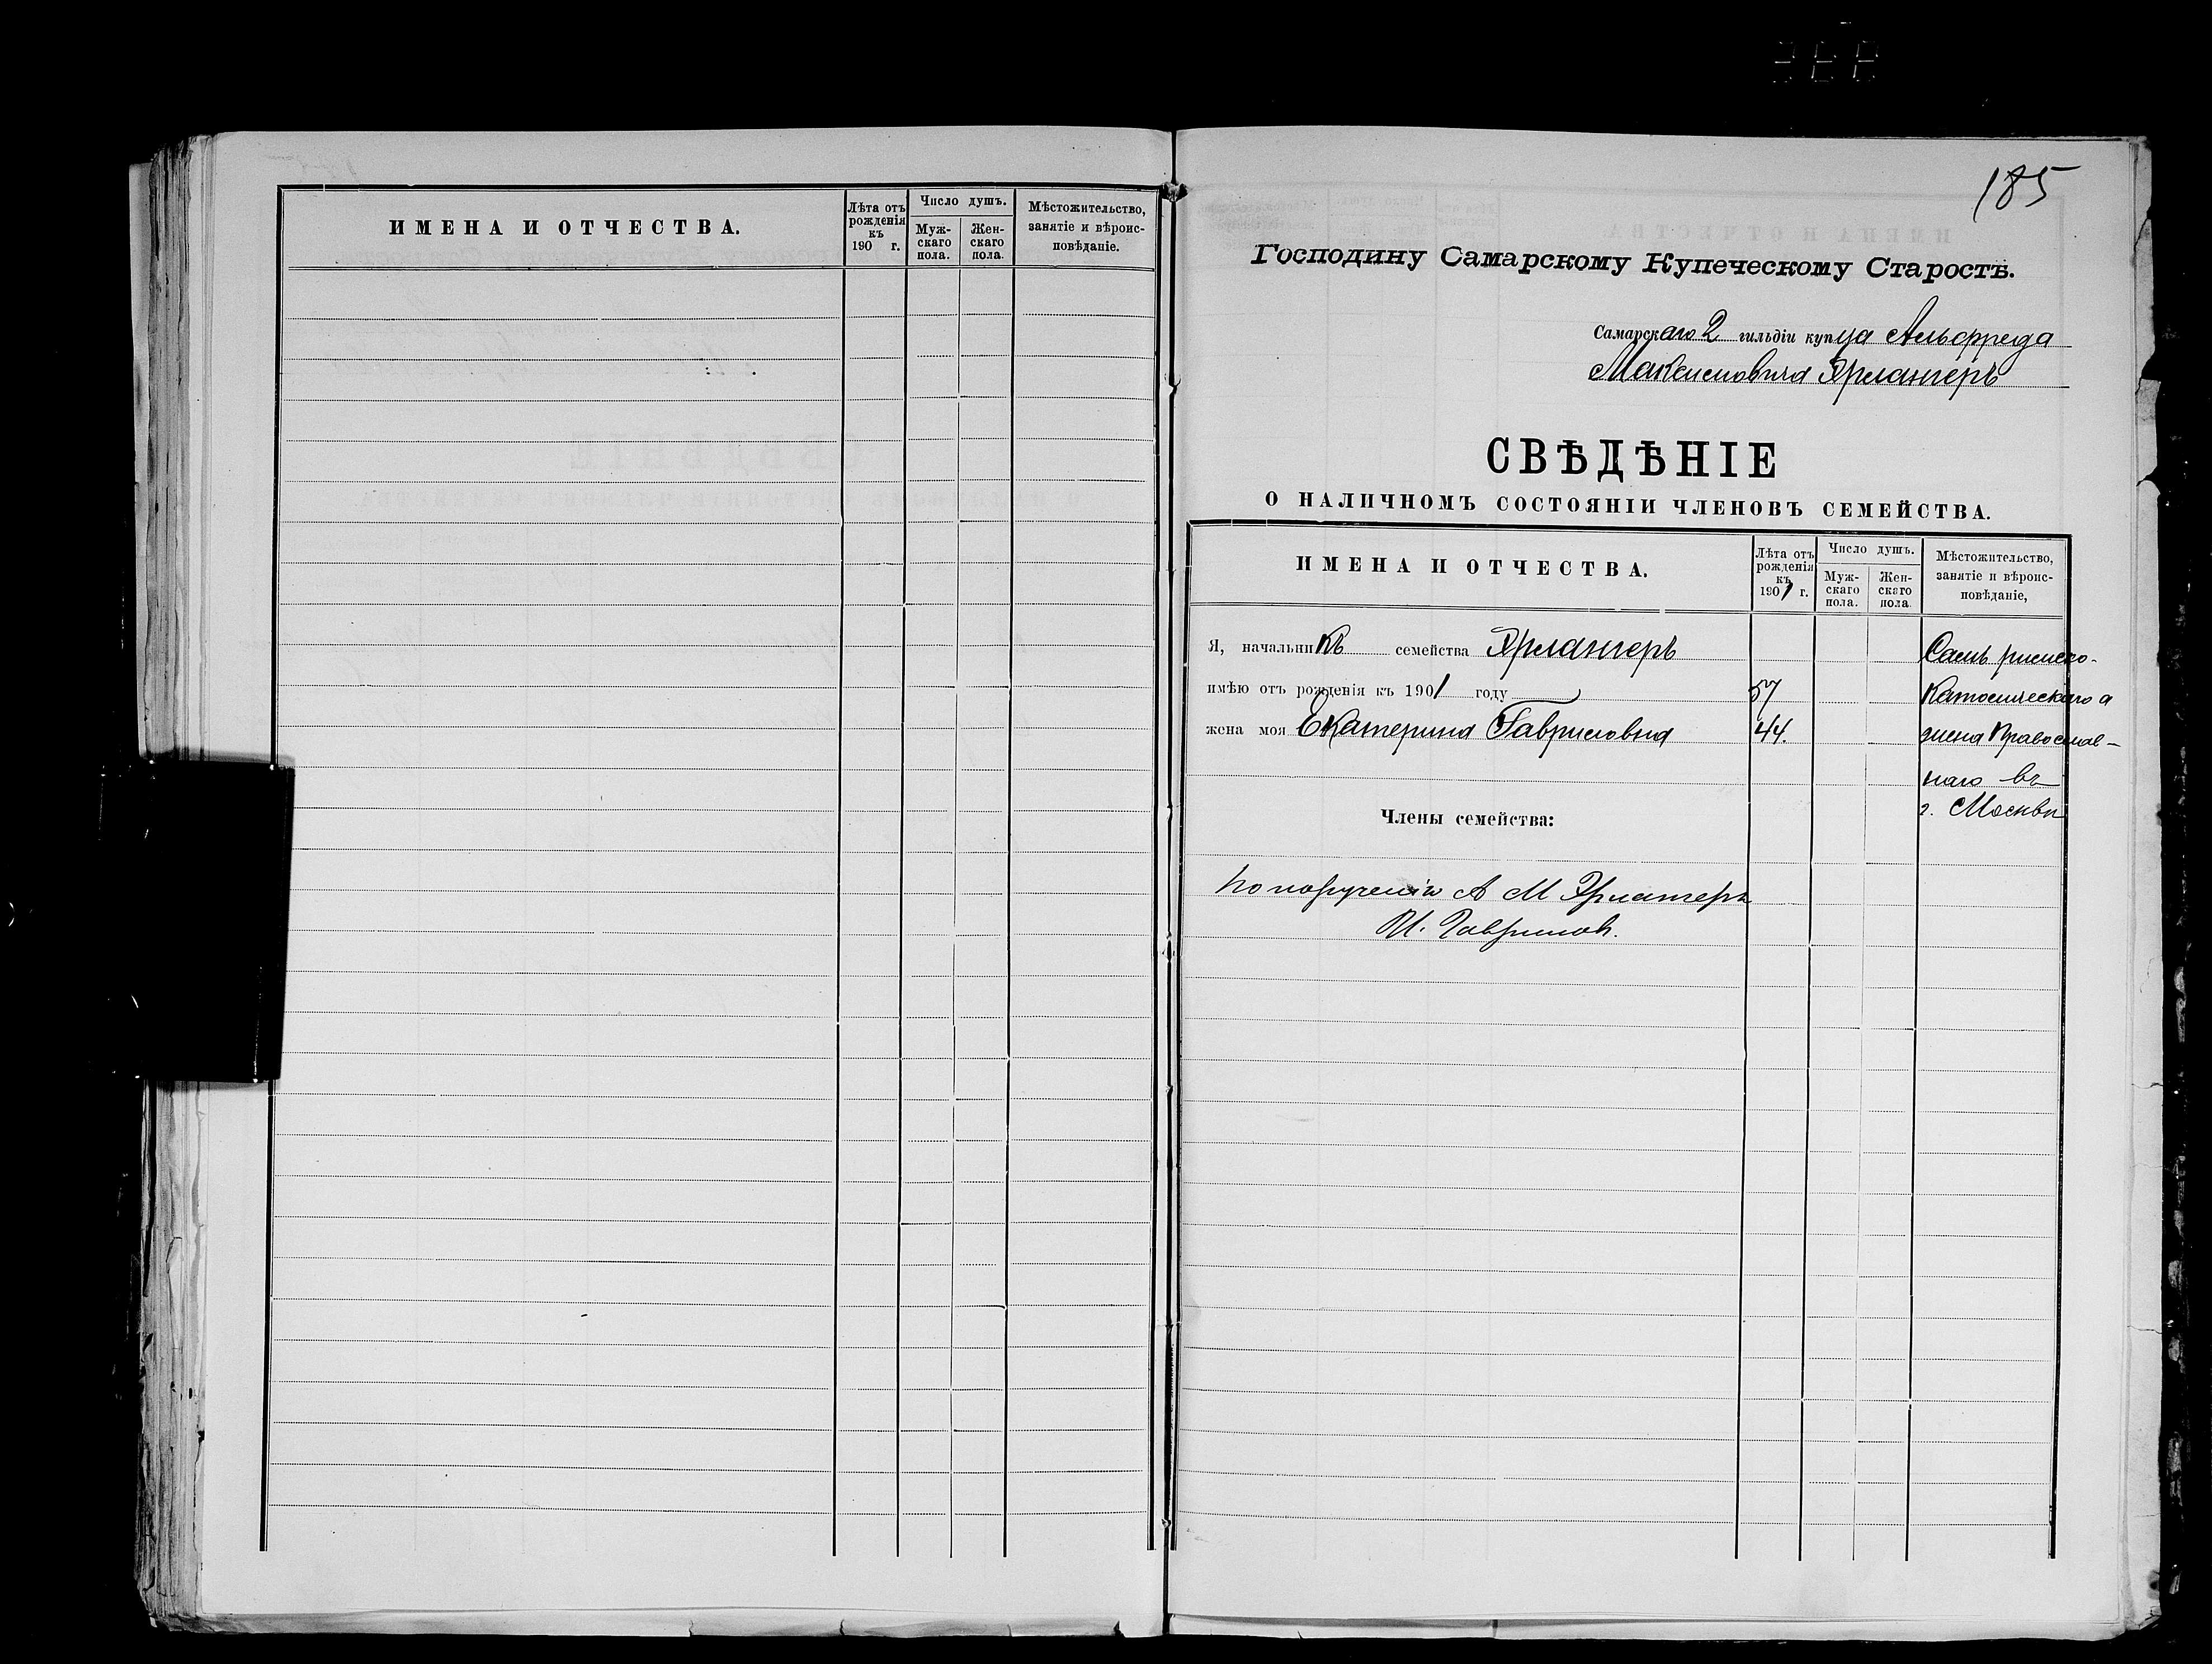 ИМЕНА И ОТЧЕСТВА.
Лѣта отъ рожденія къ 190 г.
Число душъ.
Муж-скаго пола.
Жен-скаго пола.
Мѣстожительство, занятіе и вѣроис-повѣданіе.
185
Господину Самарскому Купеческому Старостѣ.
Самарскаго 2 гильдіи купца Альфреда
Максимовича Эрлангеръ
СВѢДѢНІЕ
О НАЛИЧНОМЪ СОСТОЯНІИ ЧЛЕНОВЪ СЕМЕЙСТВА.
ИМЕНА И ОТЧЕСТВА.
Лѣта отъ рожденія къ 1901 г.
Число душъ.
Муж-скаго пола.
Жен-скаго пола.
Мѣстожительство, занятіе и вѣроис-повѣданіе,
Я, начальникъ семейства Эрлангеръ
имѣю отъ рожденія къ 1901 году 57
жена моя Екатерина Гавриловна 44.
Самъ римско-
Католическаго а
жена Православ-
наго въ
г. Москвѣ
Члены семейства:
По порученію А М Эрлангеръ
И. Гавриловъ.